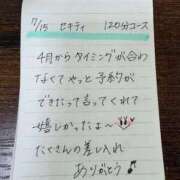 7/15 セキティ 120分コース
4月からタイミングが合わ
なくてやっと予約が
できたって言ってくれて
嬉しかったよ〜
たくさんの差し入れ
ありがとう